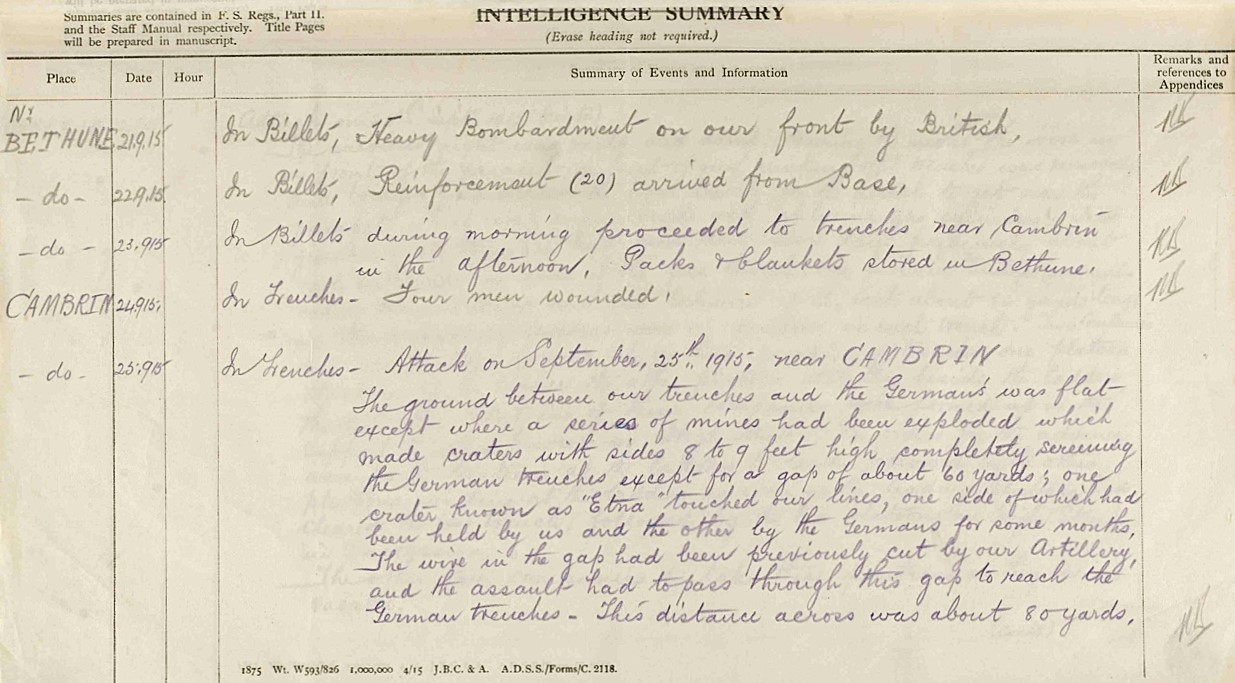 Summaries are contained in F. S. Regs., Part II. 
and the Staff Manual respectively. Title Pages
will be prepared in manuscript.
INTELLIGENCE SUMMARY
(Erase heading not required.)
Place Date Hour Summary of Events and Information Remarks and references to Appendices
Nr
BETHUNE 21.9.15 In Billets, Heavy Bombardment on our front by British,
- do - 22.9.15 In Billets, Reinforcement (20) arrived from Base,
- do - 23.9.15 In Billets during morning proceeded to trenches near Cambrin
in the afternoon, Packs & blankets stored in Bethune.
CAMBRIN 24.9.15. In Trenches - Four men wounded.
- do - 25.9.15 In Trenches - Attack on September, 25th 1915, near CAMBRIN
The ground between our trenches and the German's was flat
except where a series of mines had been exploded which
made craters with sides 8 to 9 feet high completely screening
the German trenches except for a gap of about 60 yards; one
crater known as "Etna" touched our lines, one side of which had
been held by us and the other by the Germans for some months.
The wire in the gap had been previously cut by our Artillery,
and the assault had to pass through this gap to reach the
German trenches - This distance across was about 80 yards.
1875 Wt. W593/826 1,000,000 4/15 J.B.C. & A. A.D.S.S./Forms/C. 2118.